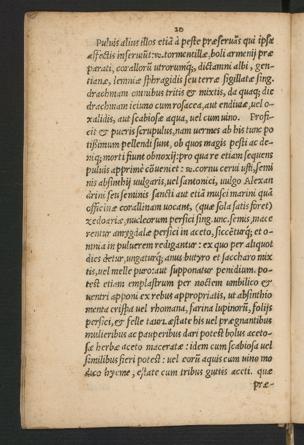 20
Puluis alius illos etiã à peste præseruãs qui ipsa
affectis inseruiũt: ℞. tormentillæ, boli armenij præ
parati, corallorũ utrorumq;, dictamni albi, gen-
tianæ, lemniæ sphragidis seu terræ sigillatæ sing.
drachmam omnibus tritis & mixtis, da quaq; die
drachmam ieiuno cum rosacea, aut endiuiæ, uel o-
xalidis, aut scabiosæ aqua, uel cum uino. Profi-
cit & pueris scrupulus, nam uermes ab his tunc po
tißimum pellendi sunt, ob quos magis pesti ac de-
niq; morti fiunt obnoxij: pro qua re etiam sequens
puluis apprimè cõuenit: ℞. cornu cerui usti, semi
nis absinthij uulgaris, uel santonici, uulgo Alexan
drini seu seminis sancti aut etiã musci marini quã
officinæ corallinam uocant, (quæ sola satis foret)
zedoariæ, nucleorum persici sing. unc. semis, mace
rentur amygdalæ persici in aceto, siccẽturq; et o-
mnia in puluerem redigantur: ex quo per aliquot
dies detur, ungaturq; anus butyro et saccharo mix
tis, uel melle puro: aut supponatur penidium. po-
test etiam emplastrum per noctem umbilico &
uentri apponi ex rebus appropriatis, ut absinthio
menta crispa uel rhomana, farina lupinorũ, folijs
persici, & felle tauri. æstate his uel prægnantibus
mulieribus ac pauperibus dari potest bolus aceto-
sæ herbæ aceto maceratæ: idem cum scabiosa uel
similibus fieri potest: uel eorũ aquis cum uino mo
dico hyeme, æstate cum tribus guttis aceti. quæ
præ-